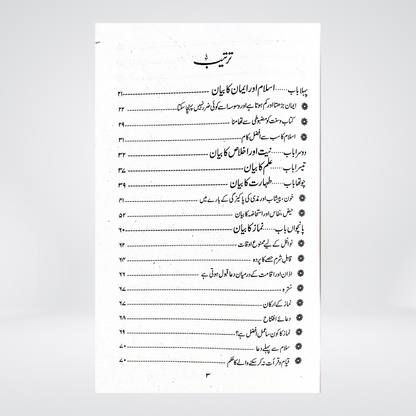 ترتیب
پہلا باب......اسلام اور ایمان کا بیان ۲۱
ایمان بڑھتا اور کم ہوتا ہے اور وسوسہ سے کوئی ضرر نہیں پہنچا سکتا ۲۲
کتاب و سنت کو مضبوطی سے تھامنا ۲۹
اسلام کا سب سے افضل کام ۳۱
دوسرا باب......نیت اور اخلاص کا بیان ۳۲
تیسرا باب......علم کا بیان ۳۷
چوتھا باب......طہارت کا بیان ۳۹
خون، پیشاب اور مذی کی پاکیزگی کے بارے میں ۴۱
حیض، نفاس اور استحاضہ کا بیان ۵۲
پانچواں باب......نماز کا بیان ۶۰
نوافل کے لیے ممنوع اوقات ۶۳
قابل شرم حصے کا پردہ ۶۴
اذان اور اقامت کے درمیان دعا قبول ہوتی ہے ۶۶
سترہ ۶۷
نماز کے ارکان ۶۷
دعائے افتتاح ۶۸
نماز کا کون سا عمل افضل ہے؟ ۶۹
سلام سے پہلے دعا ۷۰
قیام و قرأت نہ کر سکنے والے کا حکم ۷۰
۳